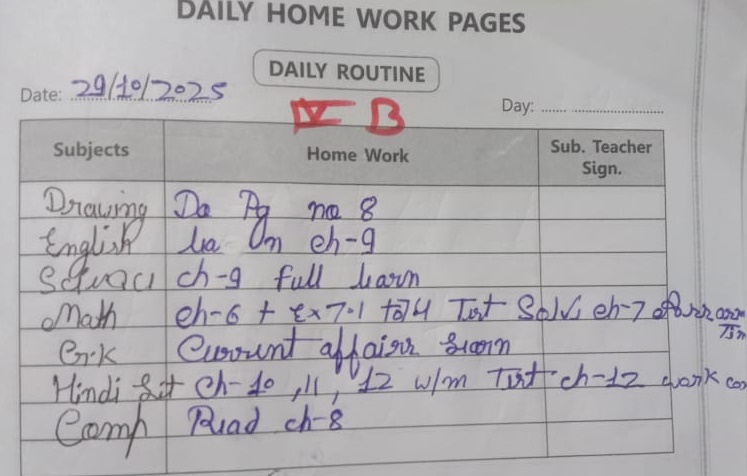 DAILY HOME WORK PAGES
DAILY ROUTINE
Date: 29/10/2025
Day:
IV B
Subjects Home Work Sub. Teacher Sign.
Drawing Do Pg no 8
English La On ch-9
ch-9 full learn
Math ch-6 + Ex 7.1 to 7.4 Test Solve ch-7
G.K Current affairs learn
Hindi Lit Ch-10, 11, 12 w/m Test ch-12 work
Comp Read ch-8